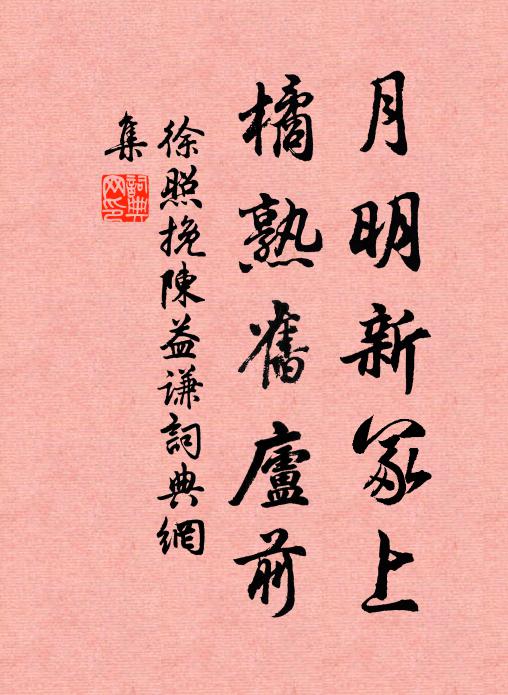 月明新冢上
橘熟舊廬前
徐照挽陳益謙詞典網
集
詞典
网印